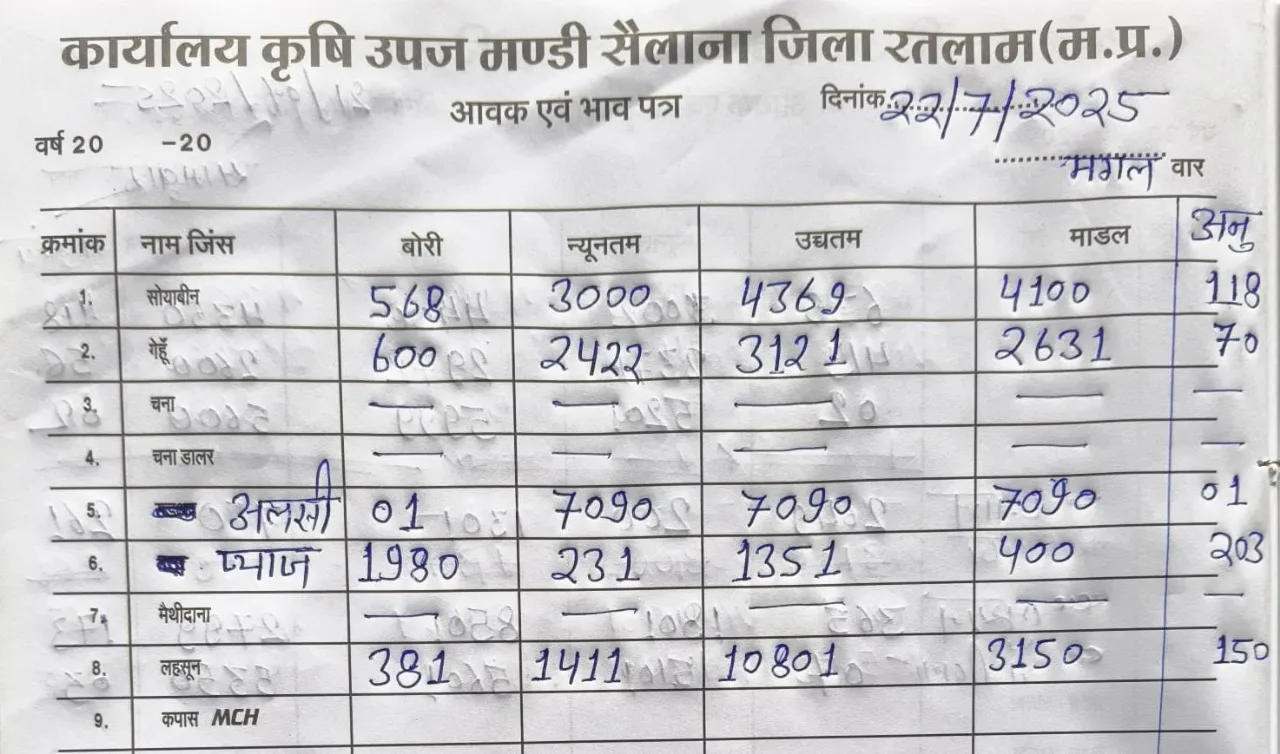 कार्यालय कृषि उपज मण्डी सैलाना जिला रतलाम(म.प्र.)
आवक एवं भाव पत्र दिनांक 22/7/2025
वर्ष 20 -20
मगल वार
क्रमांक नाम जिंस बोरी न्यूनतम उच्चतम माडल अनु
1. सोयाबीन 568 3000 4369 4100 118
2. गेहूँ 600 2422 3121 2631 70
3. चना — — — — —
4. चना डालर — — — — —
5. अलसी 01 7090 7090 7090 01
6. प्याज 1980 231 1351 400 203
7. मैथीदाना — — — — —
8. लहसून 381 1411 10801 3150 150
9. कपास MCH